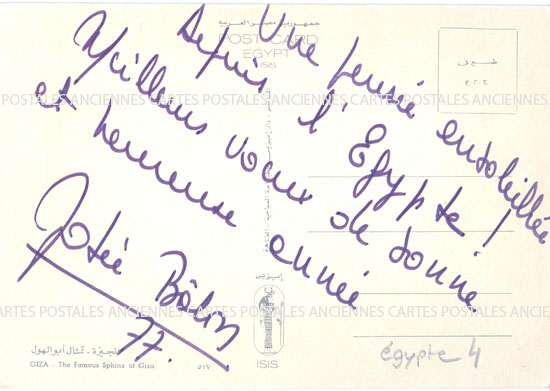 جمهورية مصر العربية
POST CARD
EGYPT
ISIS
طابع في
ج.م.ع
Une pensée ensoleillée
depuis l'Égypte!
Meilleurs vœux de bonne
et heureuse année
Josée
77.
CARTES POSTALES ANCIENNES CARTES POSTALES ANCIENNES CARTES POSTALES ANCIENNES
CARTES POSTALES ANCIENNES CARTES POSTALES ANCIENNES CARTES POSTALES ANCIENNES
إيزيس
ISIS
الجيزة - تمثال أبو الهول
GIZA - The Famous Sphinx of Giza
٥١٧
égypte 4